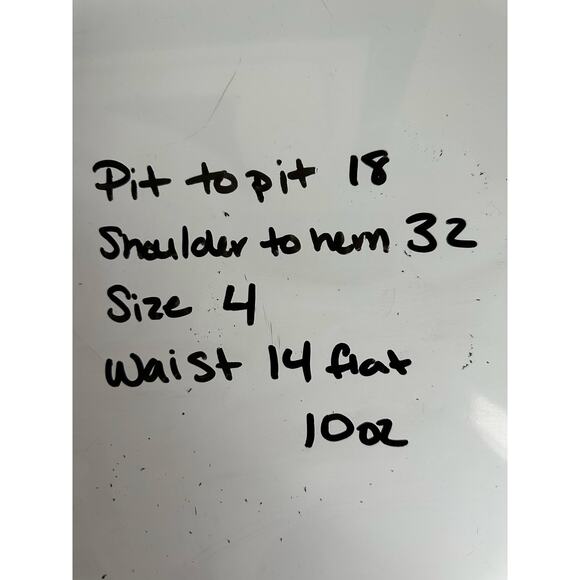 Pit to pit 18
Shoulder to hem 32
Size 4
Waist 14 flat
10oz